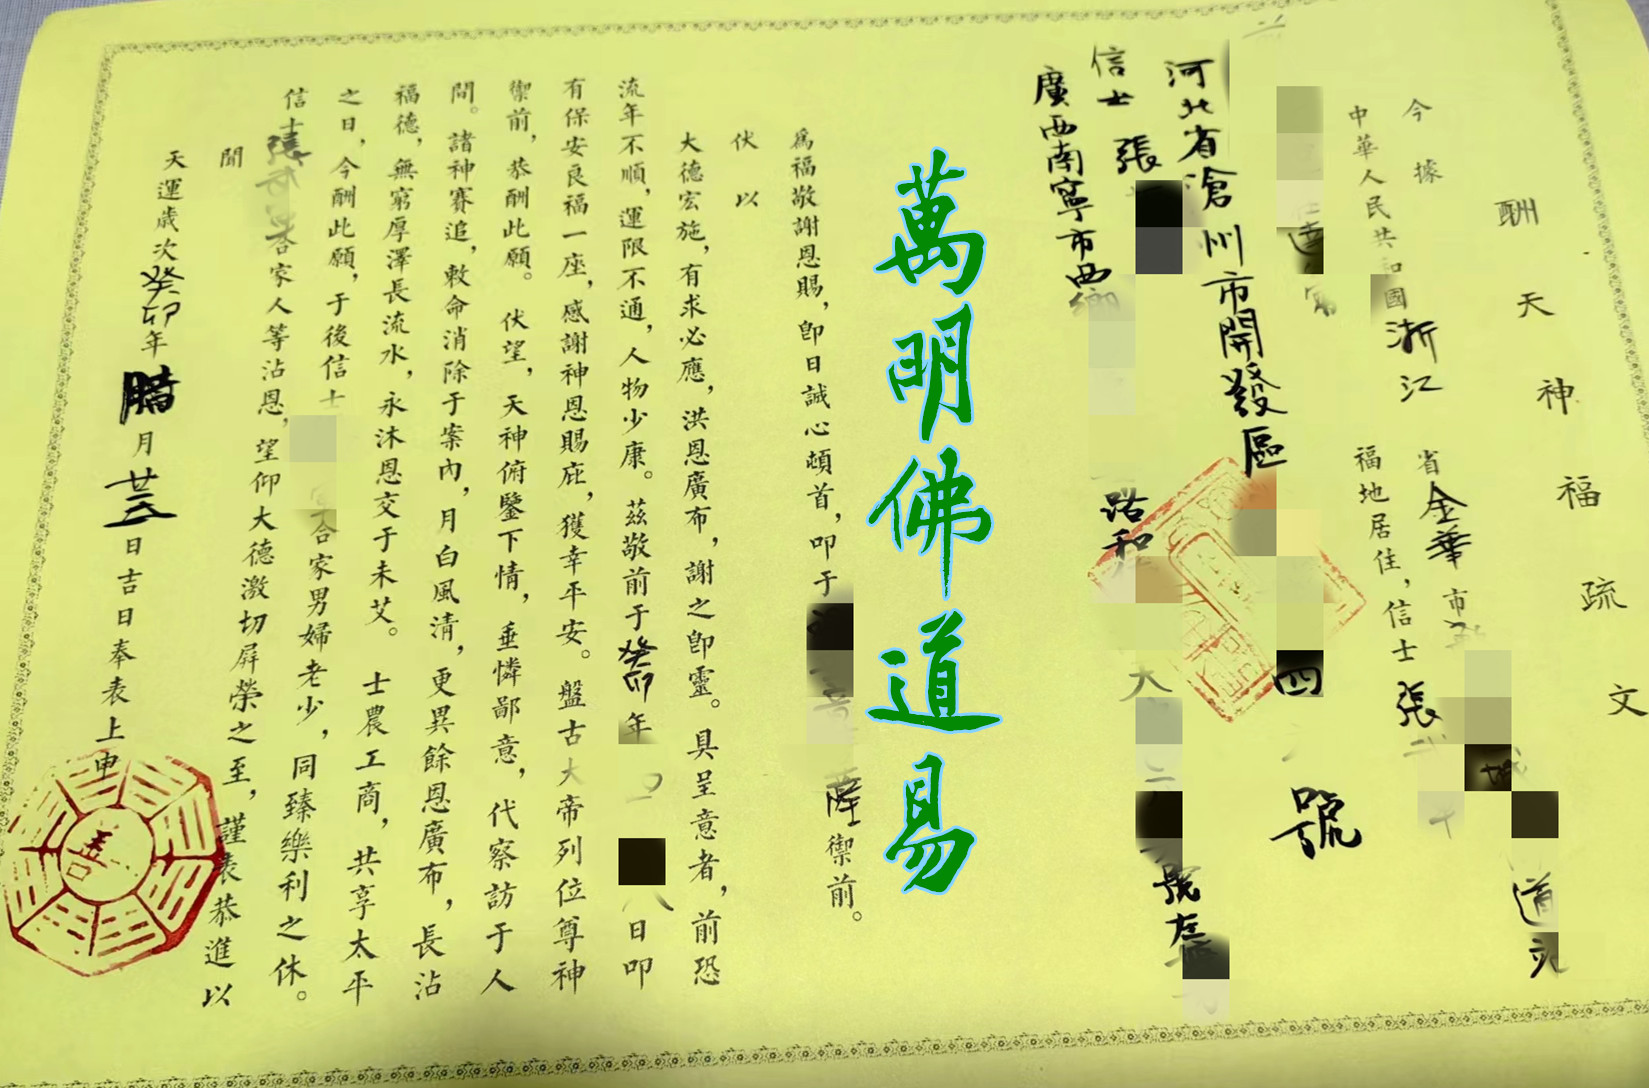 酬天神福疏文
今據
中華人民共和國浙江省金華市
福地居住，信士張
道
河北省滄州市開發區
四
號
信士張
路和
大
號
廣西南寧市西鄉
萬明佛道易
爲福敬謝恩賜，卽日誠心頓首，叩于
御前。
伏以
大德宏施，有求必應，洪恩廣布，謝之卽靈。具呈意者，前恐
流年不順，運限不通，人物少康。茲敬前于癸卯年
日叩
有保安良福一座，感謝神恩賜庇，獲幸平安。盤古大帝列位尊神
禦前，恭酬此願。伏望，天神俯鑒下情，垂憐鄙意，代察訪于人
間。諸神賽追，敕命消除于案內，月白風清，更異餘恩廣布，長沾
福德，無窮厚澤長流水，永沐恩交于未艾。士農工商，共享太平
之日，今酬此願，于後信士
合家男婦老少，同臻樂利之休。
信士張
合家人等沾恩，望仰大德激切屏榮之至，謹表恭進以
聞
天運歲次癸卯年臘月廿三日吉日奉表上申
善